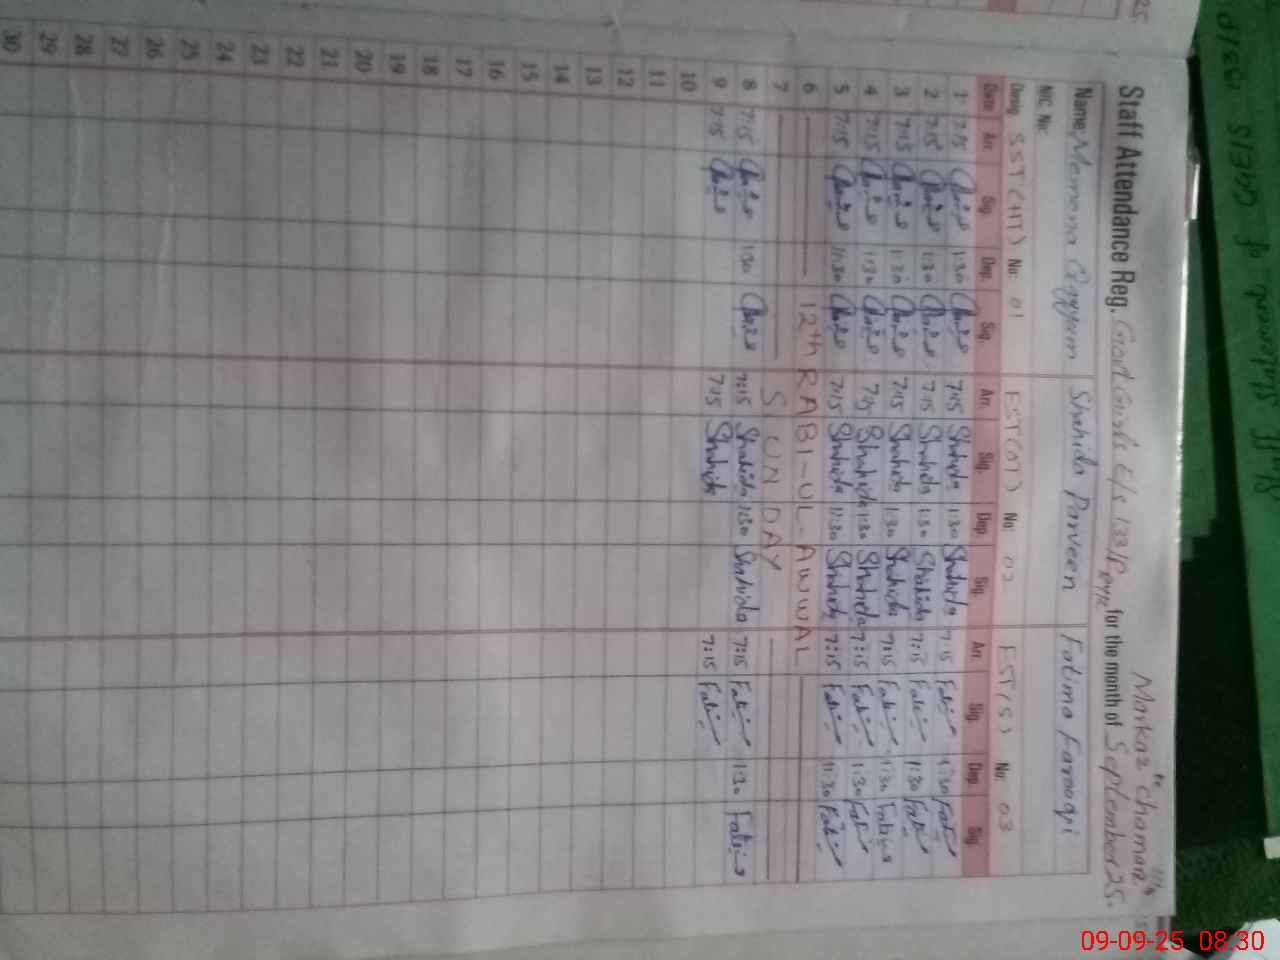 Staff Attendance Reg. Govt Girls E/S 133/P RYK for the month of September 25.
Markaz "Chaman"
Name: Memona Qayyum Shahida Parveen Fatima Farooqi
NIC. No:
Desig. SST(HT) No: 01 EST(OT) No: 02 EST(S) No: 03
Date Arr. Sig. Dep. Sig. Arr. Sig. Dep. Sig. Arr. Sig. Dep. Sig.
1 7:15 1:30 7:15 Shahida 1:30 Shahida 7:15 1:30
2 7:15 1:30 7:15 Shahida 1:30 Shahida 7:15 1:30
3 7:15 1:30 7:15 Shahida 1:30 Shahida 7:15 1:30
4 7:15 1:30 7:15 Shahida 1:30 Shahida 7:15 1:30
5 7:15 11:30 7:15 Shahida 11:30 Shahida 7:15 11:30
6 12th RABI-UL-AWWAL
7 SUNDAY
8 7:15 1:30 7:15 Shahida 1:30 Shahida 7:15 1:30
9 7:15 7:15 Shahida 7:15
10
11
12
13
14
15
16
17
18
19
20
21
22
23
24
25
26
27
28
29
30
25.
09-09-25 08:30